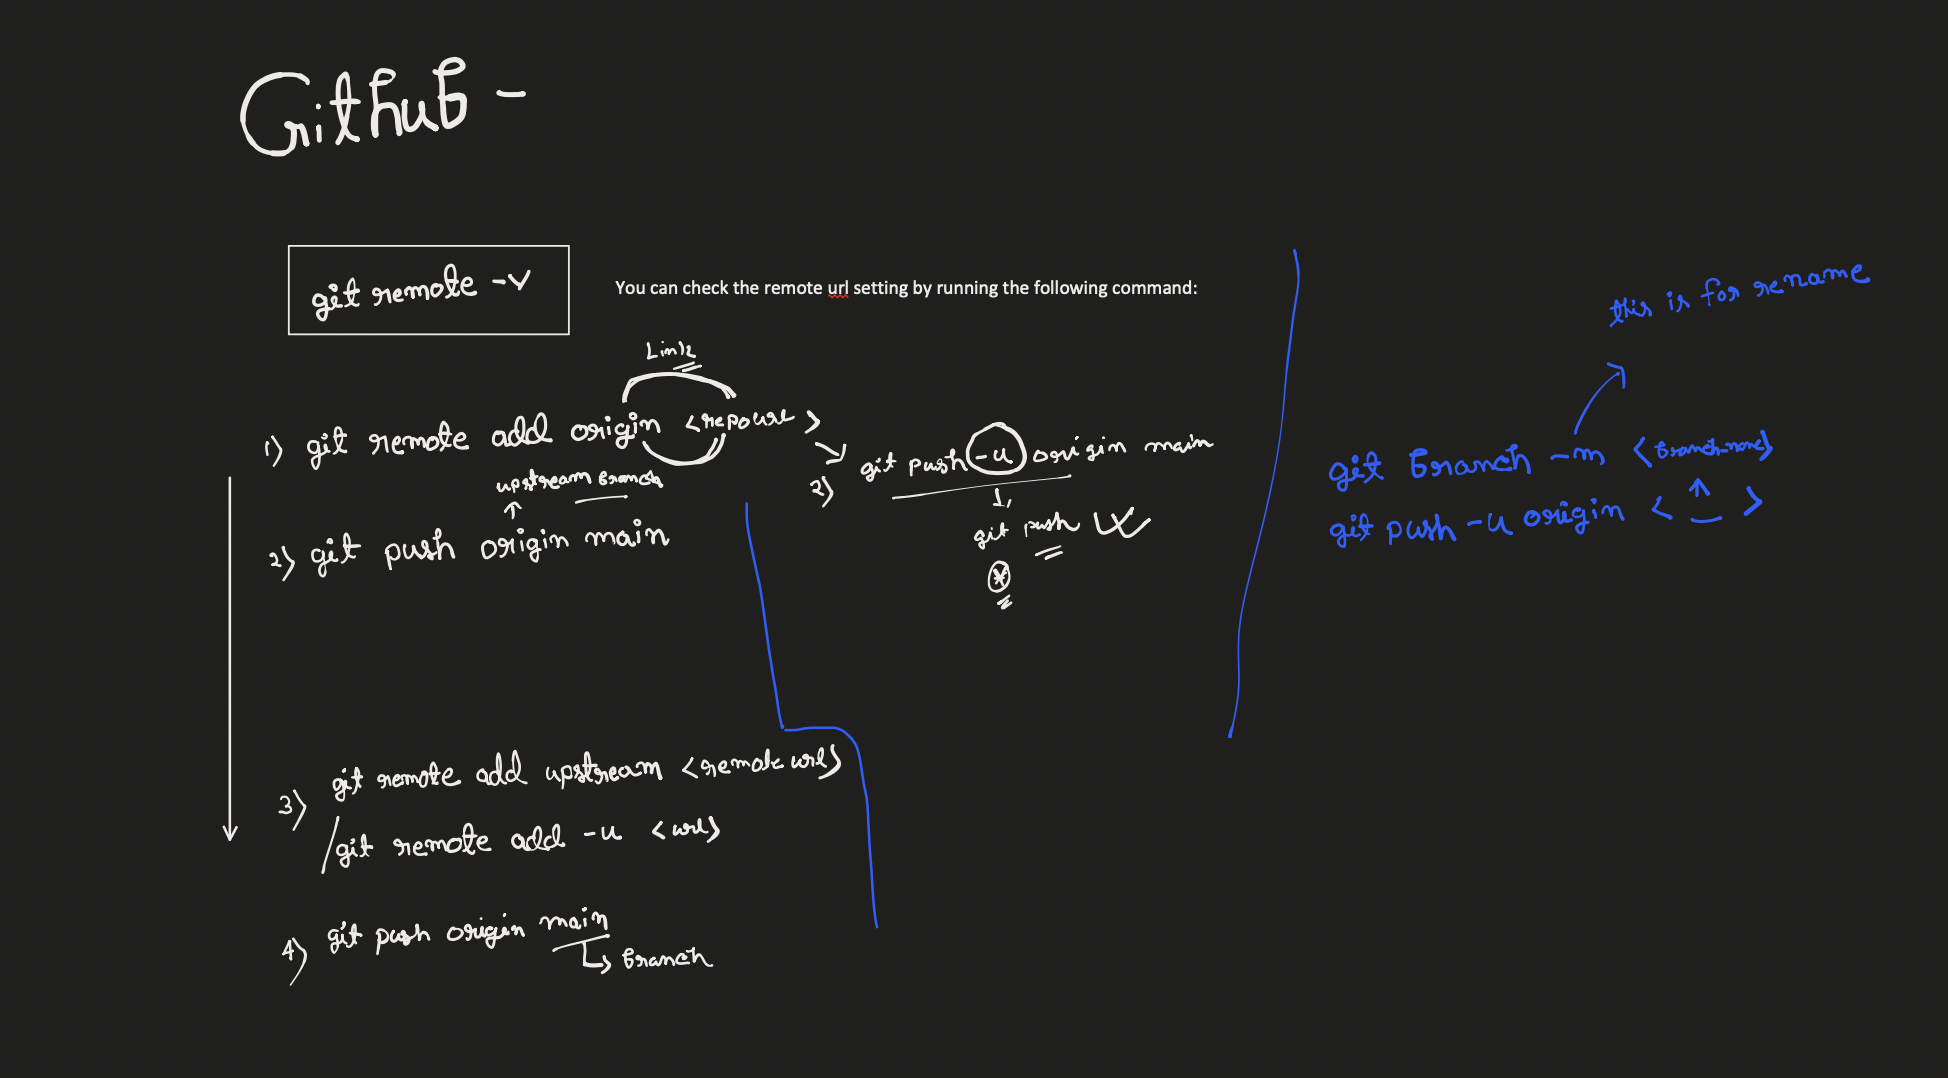 Github -
git remote -v
You can check the remote url setting by running the following command:
Link
1) git remote add origin <repourl>
upstream branch
2) git push origin main
2) git push -u origin main
git push
3) git remote add upstream <remote url>
/git remote add -u <url>
4) git push origin main
branch
this is for rename
git branch -m <branch-name>
git push -u origin < >